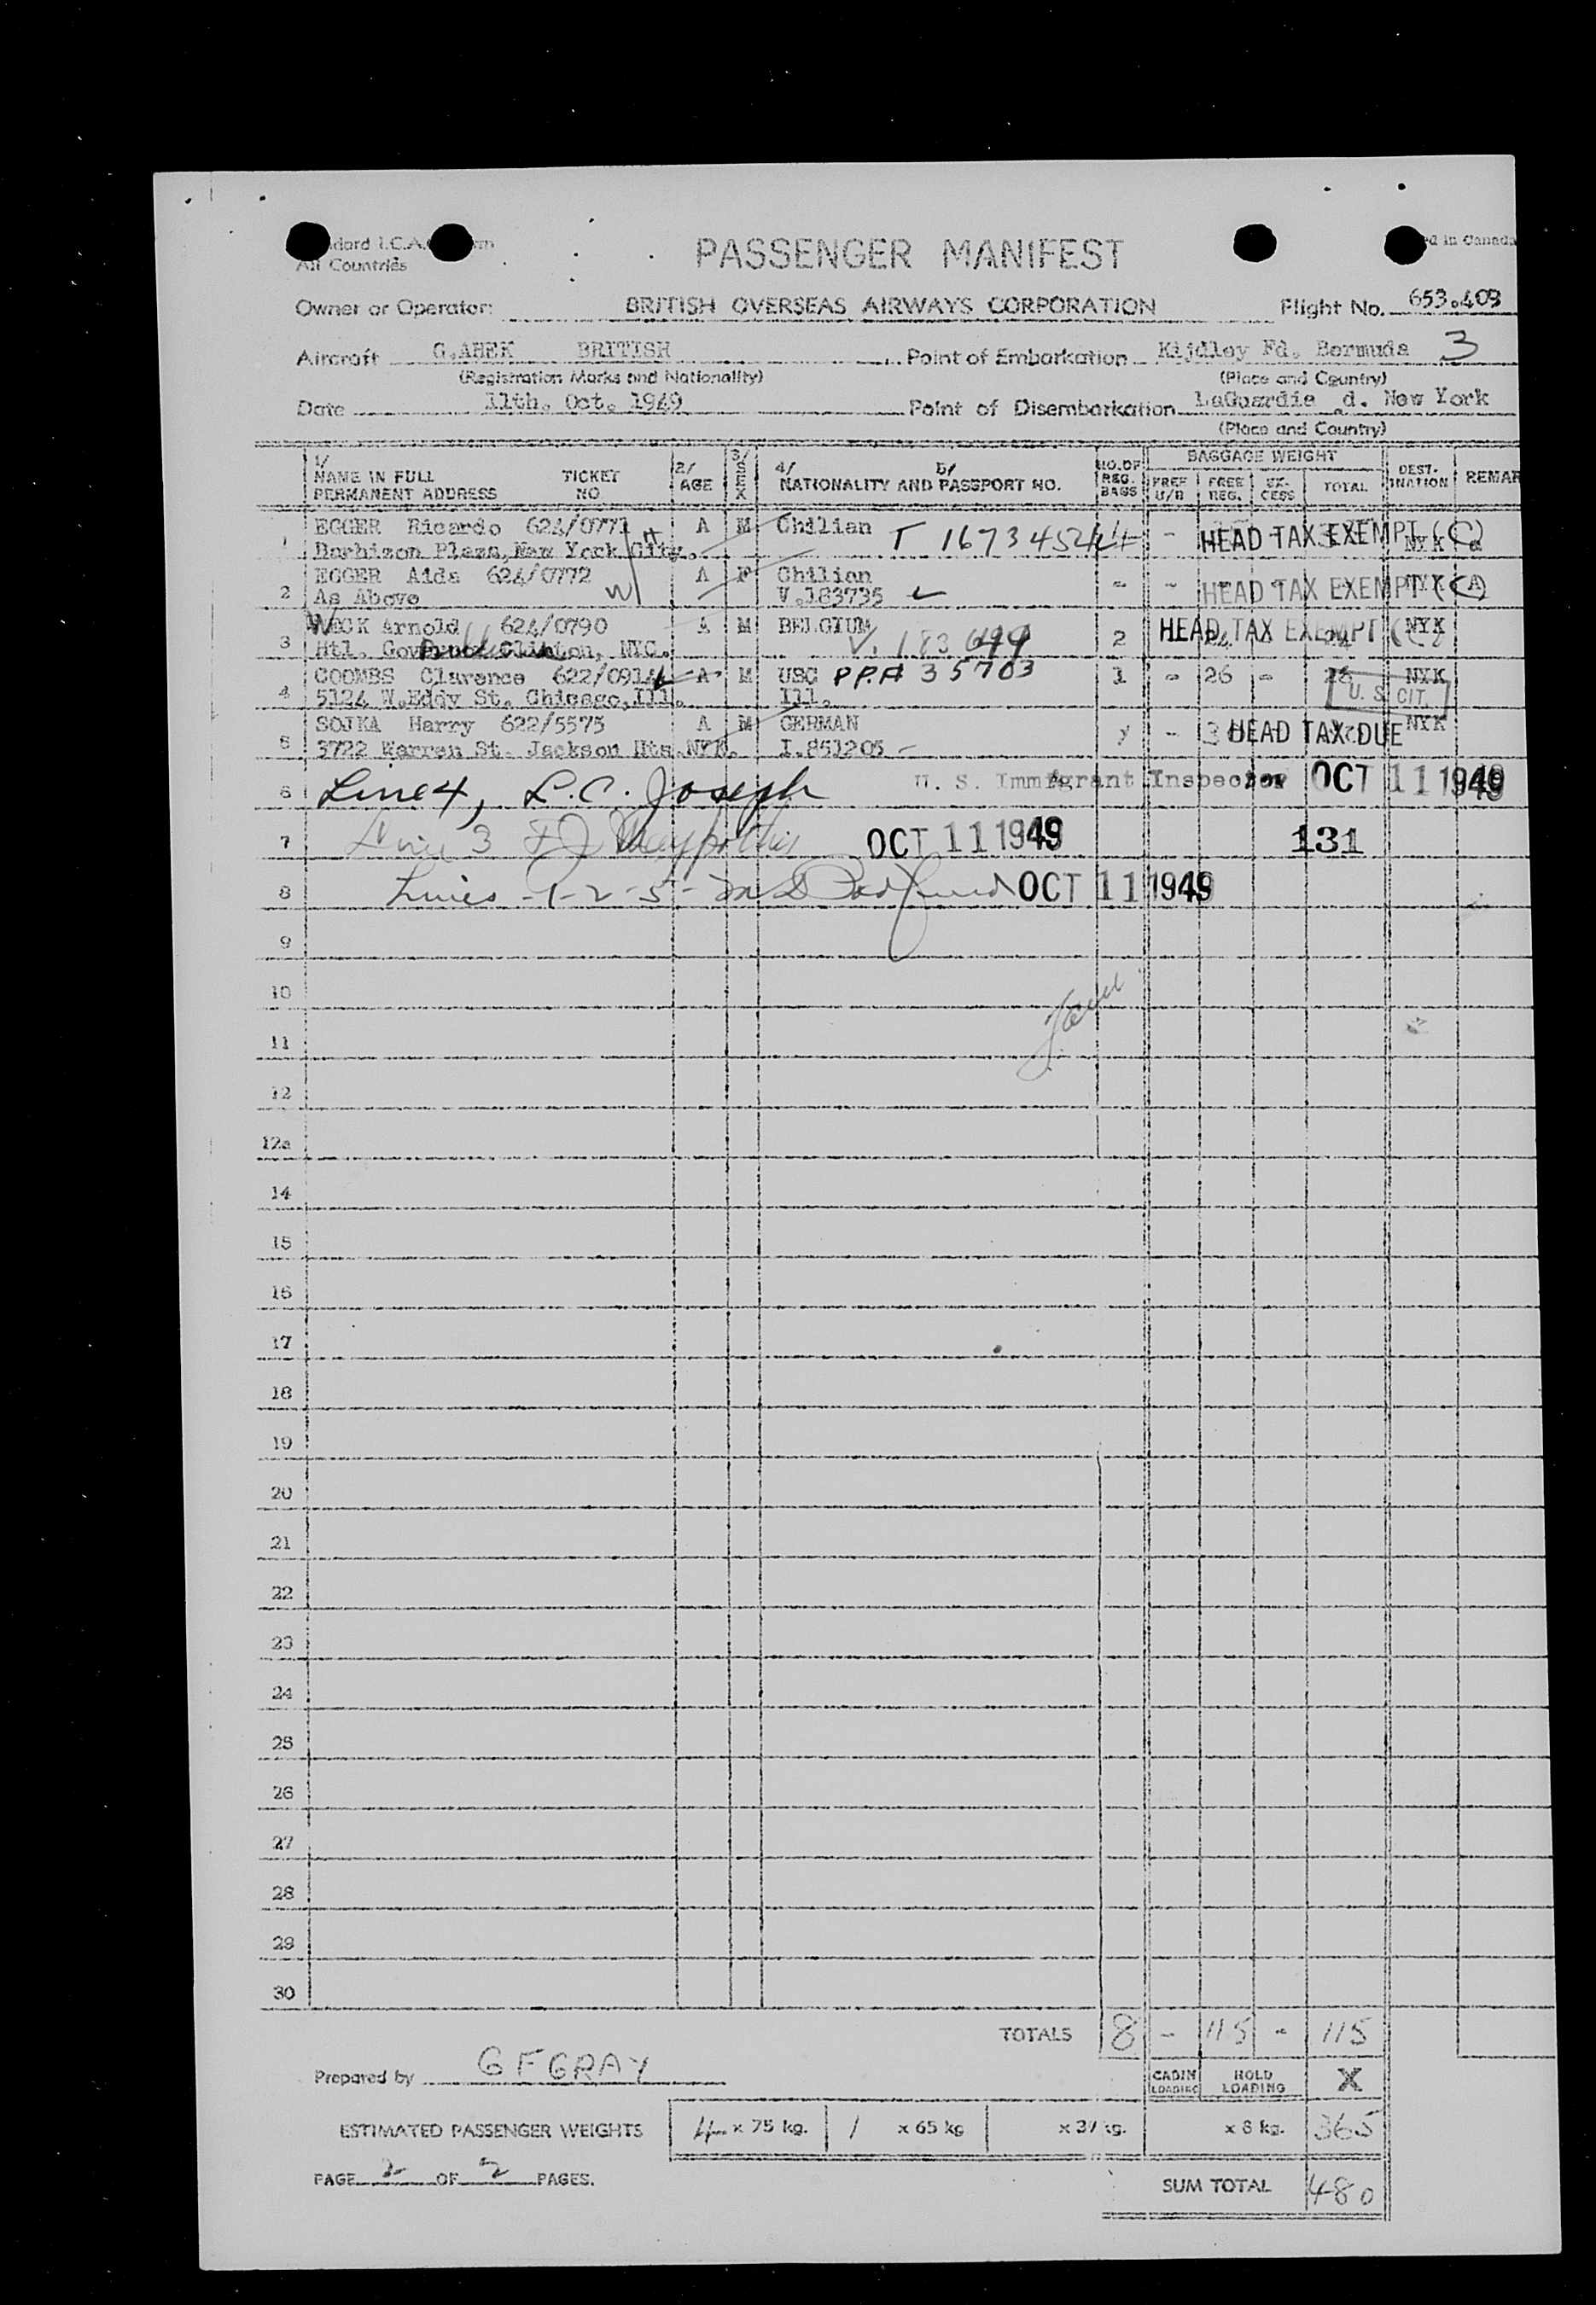 All Countries
PASSENGER MANIFEST
d in Canada
Owner or Operator: BRITISH OVERSEAS AIRWAYS CORPORATION Flight No. 653.409
Aircraft G.AHEK BRITISH Point of Embarkation Kijdley Fd. Bermuda 3
(Registration Marks and Nationality) (Place and Country)
Date 11th. Oct. 1949 Point of Disembarkation LaGuardie d. New York
(Place and Country)
1/ NAME IN FULL PERMANENT ADDRESS TICKET NO 2/ AGE 3/ SEX 4/ 5/ NATIONALITY AND PASSPORT NO. NO. OF REG. BAGS BAGGAGE WEIGHT FREE U/B FREE REG. EX-CESS TOTAL DEST-INATION REMAR
1 EGGER Ricardo 624/0771 A M Chilian T 1673452 - HEAD TAX EXEMPT (C) NYK
Barbizon Plaza, New York City.
2 EGGER Aida 624/0772 A F Chilian - - HEAD TAX EXEMPT (C) NYK
As Above V.183735
3 WECK Arnold 624/0790 A M BELGIUM 2 HEAD TAX EXEMPT NYK
Htl. Governor Clinton, NYC. V. 183699
4 COOMBS Clarence 622/0914 A M USC PP.# 35703 1 - 26 - 26 NYK
5124 W.Eddy St. Chicago, Ill. Ill. U. S. CIT.
5 SOJKA Harry 622/5575 A M GERMAN - HEAD TAX DUE NYK
3722 Warren St. Jackson Hts.NYK. I.851205 -
6 Line 4, L.C. Joseph U. S. Immigrant Inspector OCT 11 1949
7 Line 3 OCT 11 1949 131
8 Lines -1-2-5- OCT 11 1949
9
10
11
12
12a
14
15
16
17
18
19
20
21
22
23
24
25
26
27
28
29
30
TOTALS 8 - 115 - 115
Prepared by G F GRAY CABIN LOADING HOLD LOADING X
ESTIMATED PASSENGER WEIGHTS 4 x 75 kg. 1 x 65 kg x 8 kg. 365
PAGE 2 OF 2 PAGES. SUM TOTAL 480